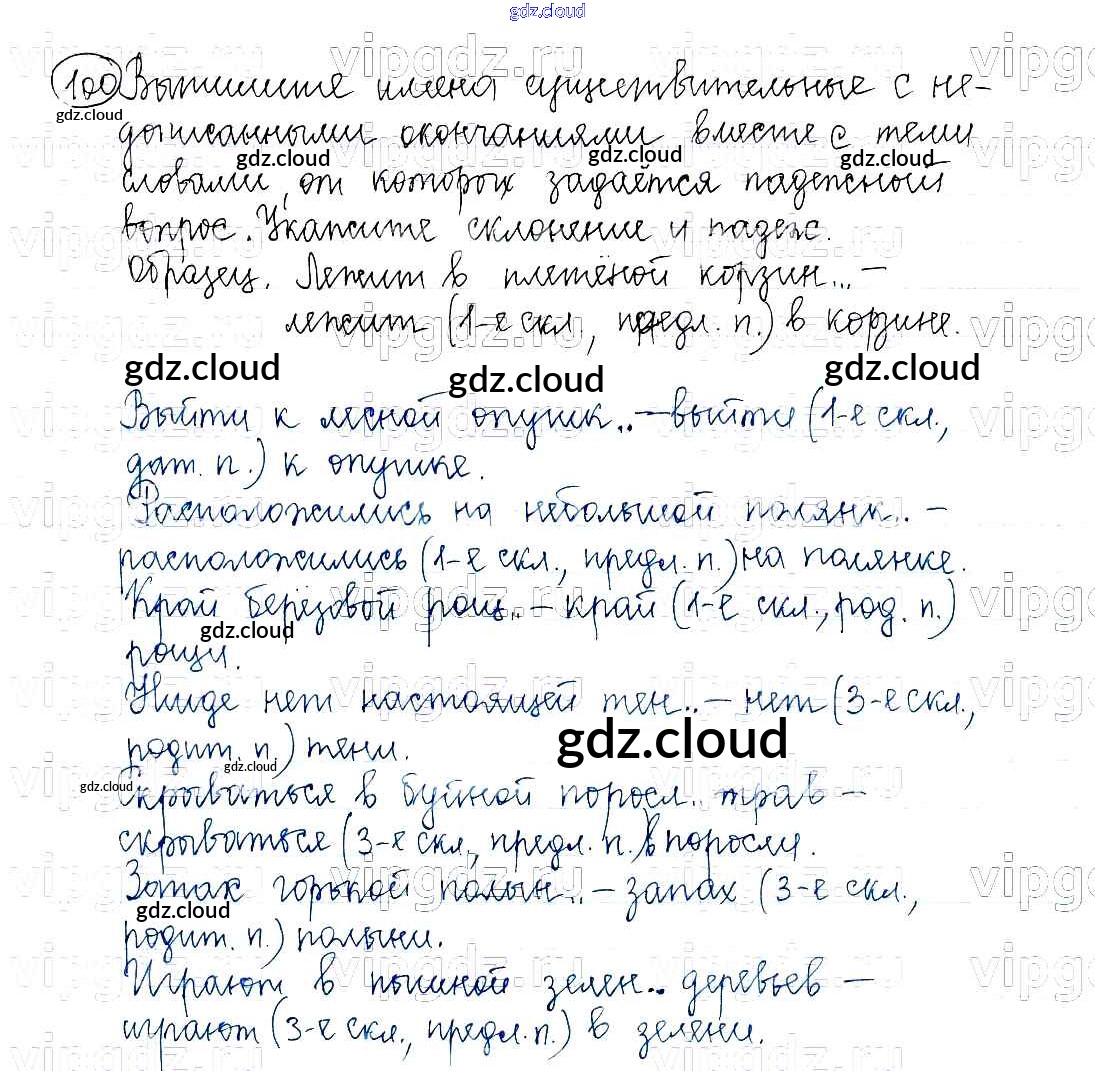 gdz.cloud
100 Выпишите имена существительные с не-
дописанными окончаниями вместе с теми
словами, от которых задаётся падежной
вопрос. Укажите склонение и падеж.
Образец. Лежит в плетёной корзин... –
лежит (1-е скл., предл. п.) в корзине.
Выйти к лесной опушк.. – выйти (1-е скл.,
дат. п.) к опушке.
Расположились на небольшой полянк.. –
расположились (1-е скл., предл. п.) на полянке.
Край берёзовой рощ.. – край (1-е скл., род. п.)
рощи.
Нигде нет настоящей тен.. – нет (3-е скл.,
родит. п.) тени.
Скрываться в буйной поросл.. трав –
скрываться (3-е скл., предл. п.) в поросли.
Запах горькой полын.. – запах (3-е скл.,
родит. п.) полыни.
Играют в пышной зелен.. деревьев –
играют (3-е скл., предл. п.) в зелени.